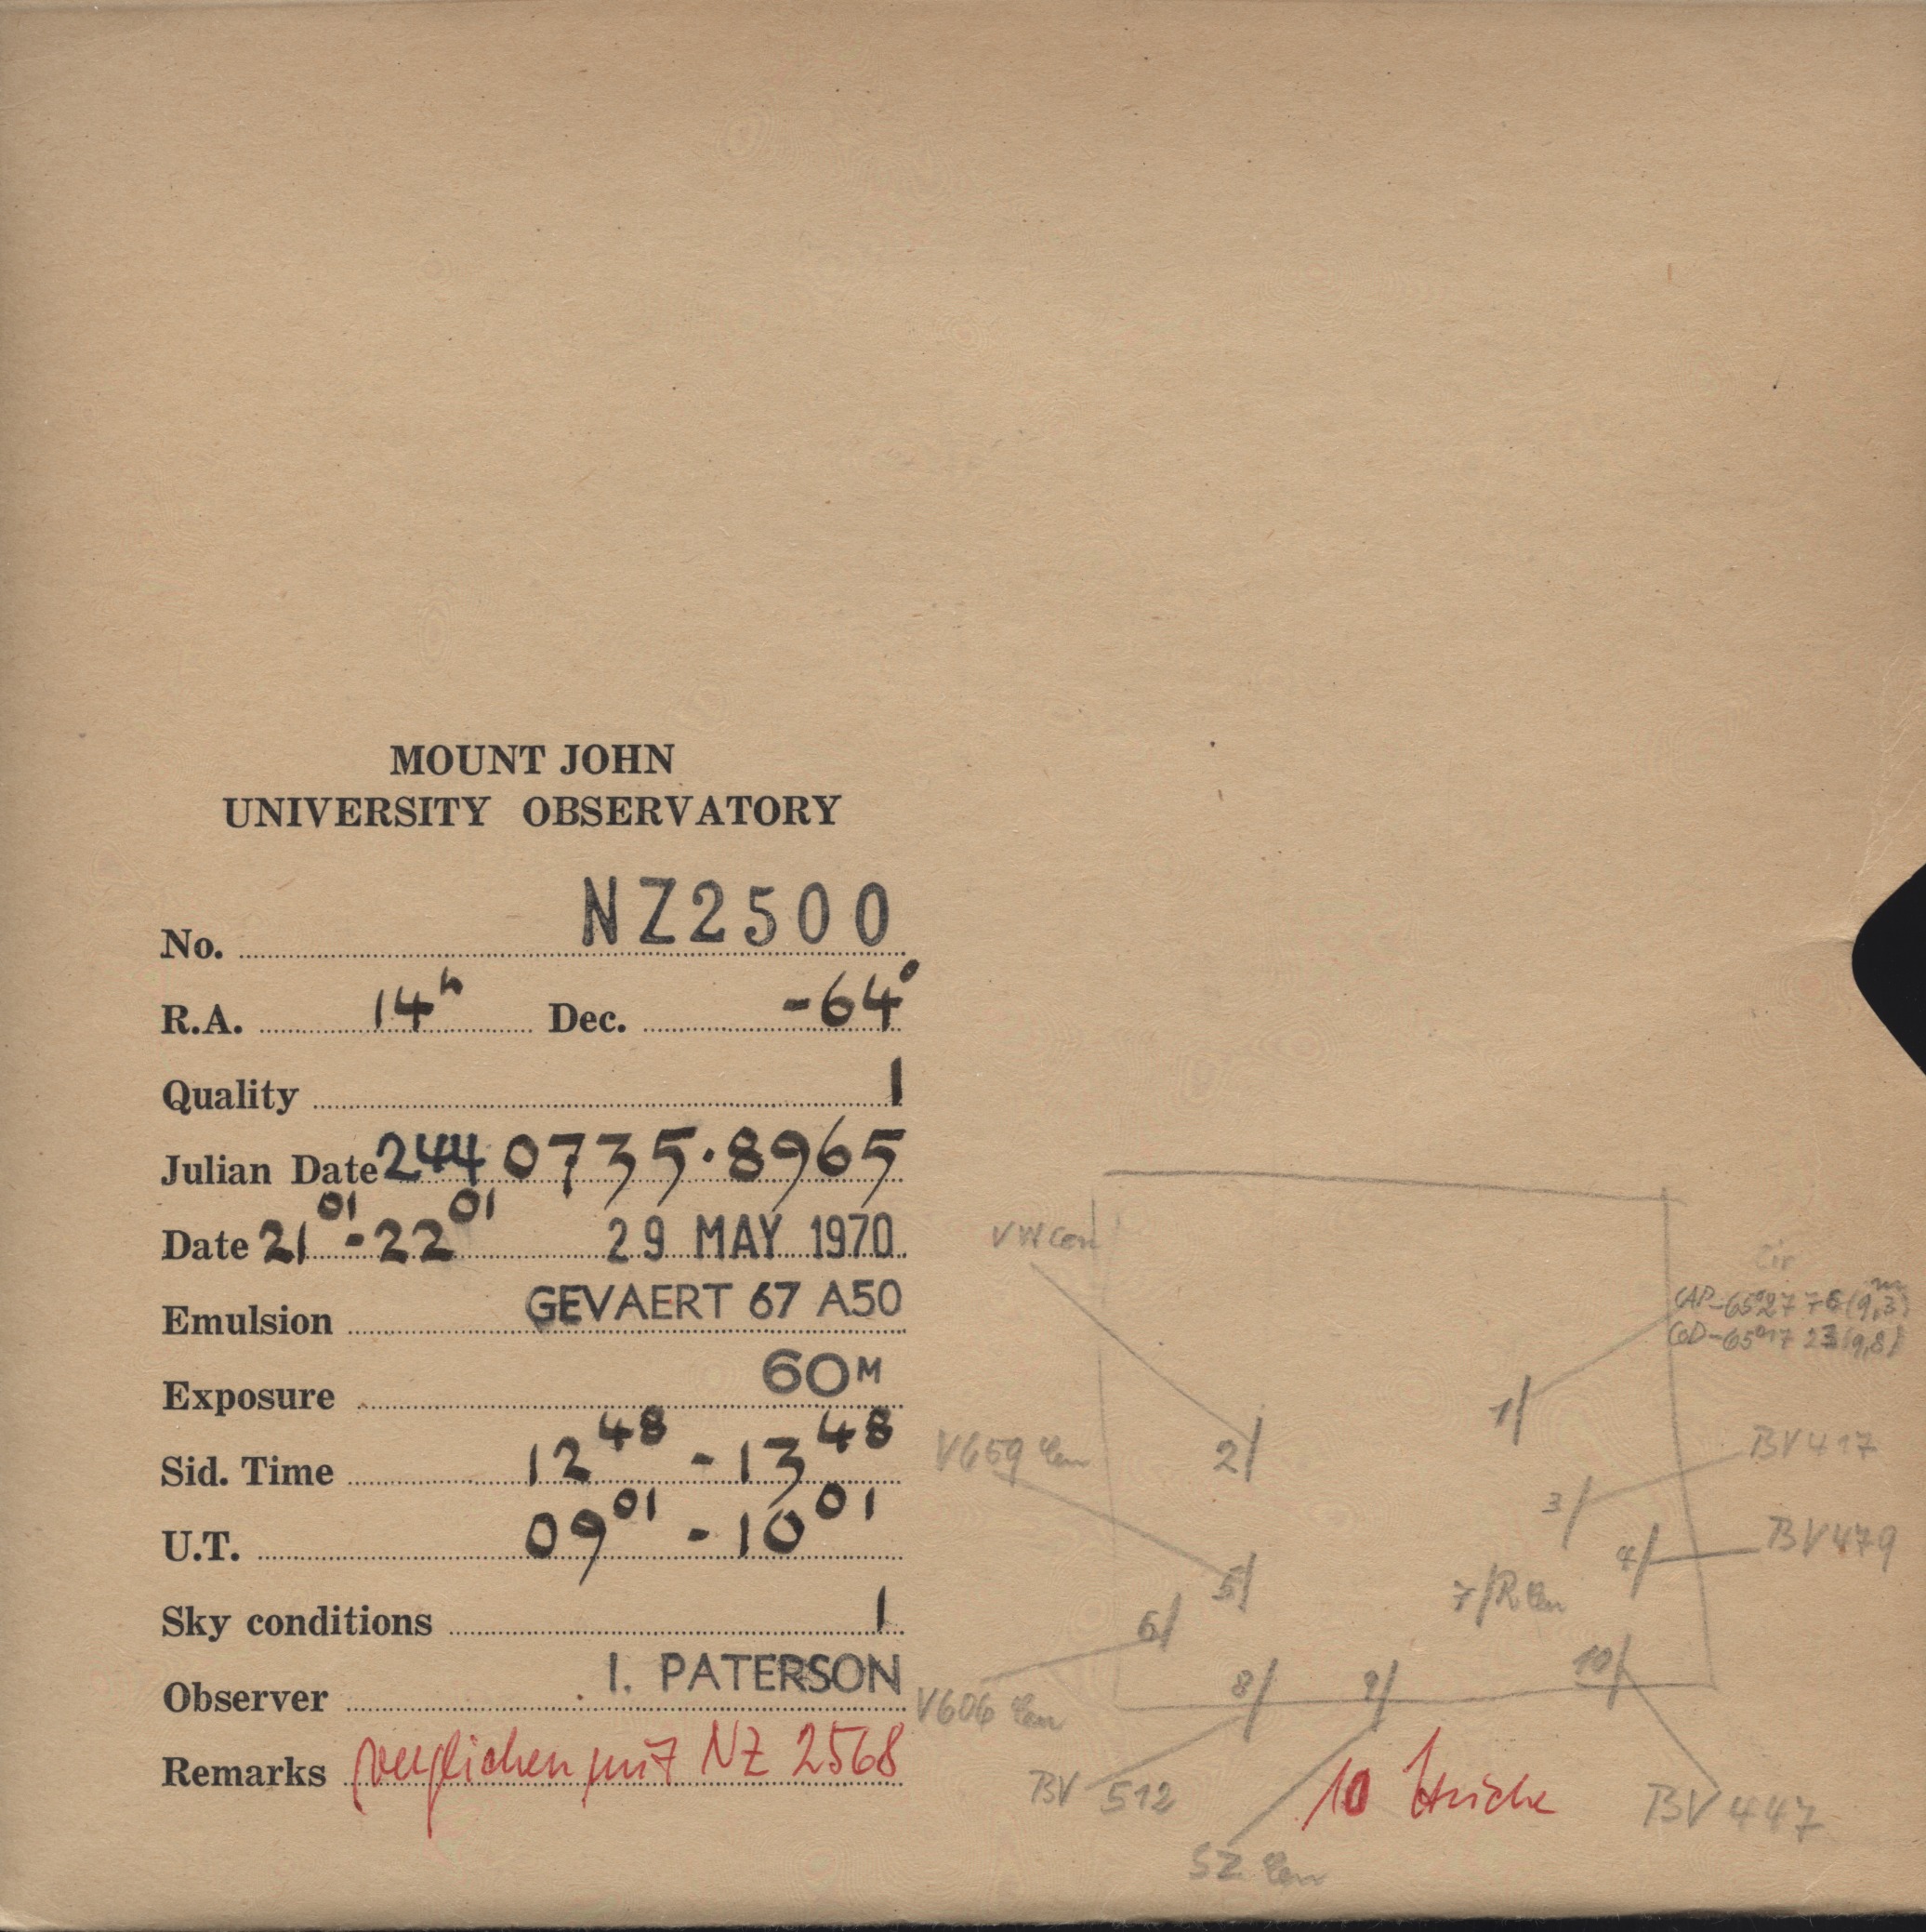 MOUNT JOHN
UNIVERSITY OBSERVATORY
No. NZ2500
R.A. 14h Dec. -64°
Quality 1
Julian Date 244 0735.8965
Date 21 01 - 22 01 29 MAY 1970
Emulsion GEVAERT 67 A50
Exposure 60M
Sid. Time 12 48 - 13 48
U.T. 09 01 - 10 01
Sky conditions 1
Observer I. PATERSON
Remarks verglichen mit NZ 2568
VW Cen
Cir
CAP-65°2776 (9,3m)
COD-65°1723 (9,8)
1
2
V659 Cen
BV 417
3
BV 479
4
5
7 R Cen
6
V606 Cen
8
9
10
BV 512
10 Striche
BV 447
SZ Cen